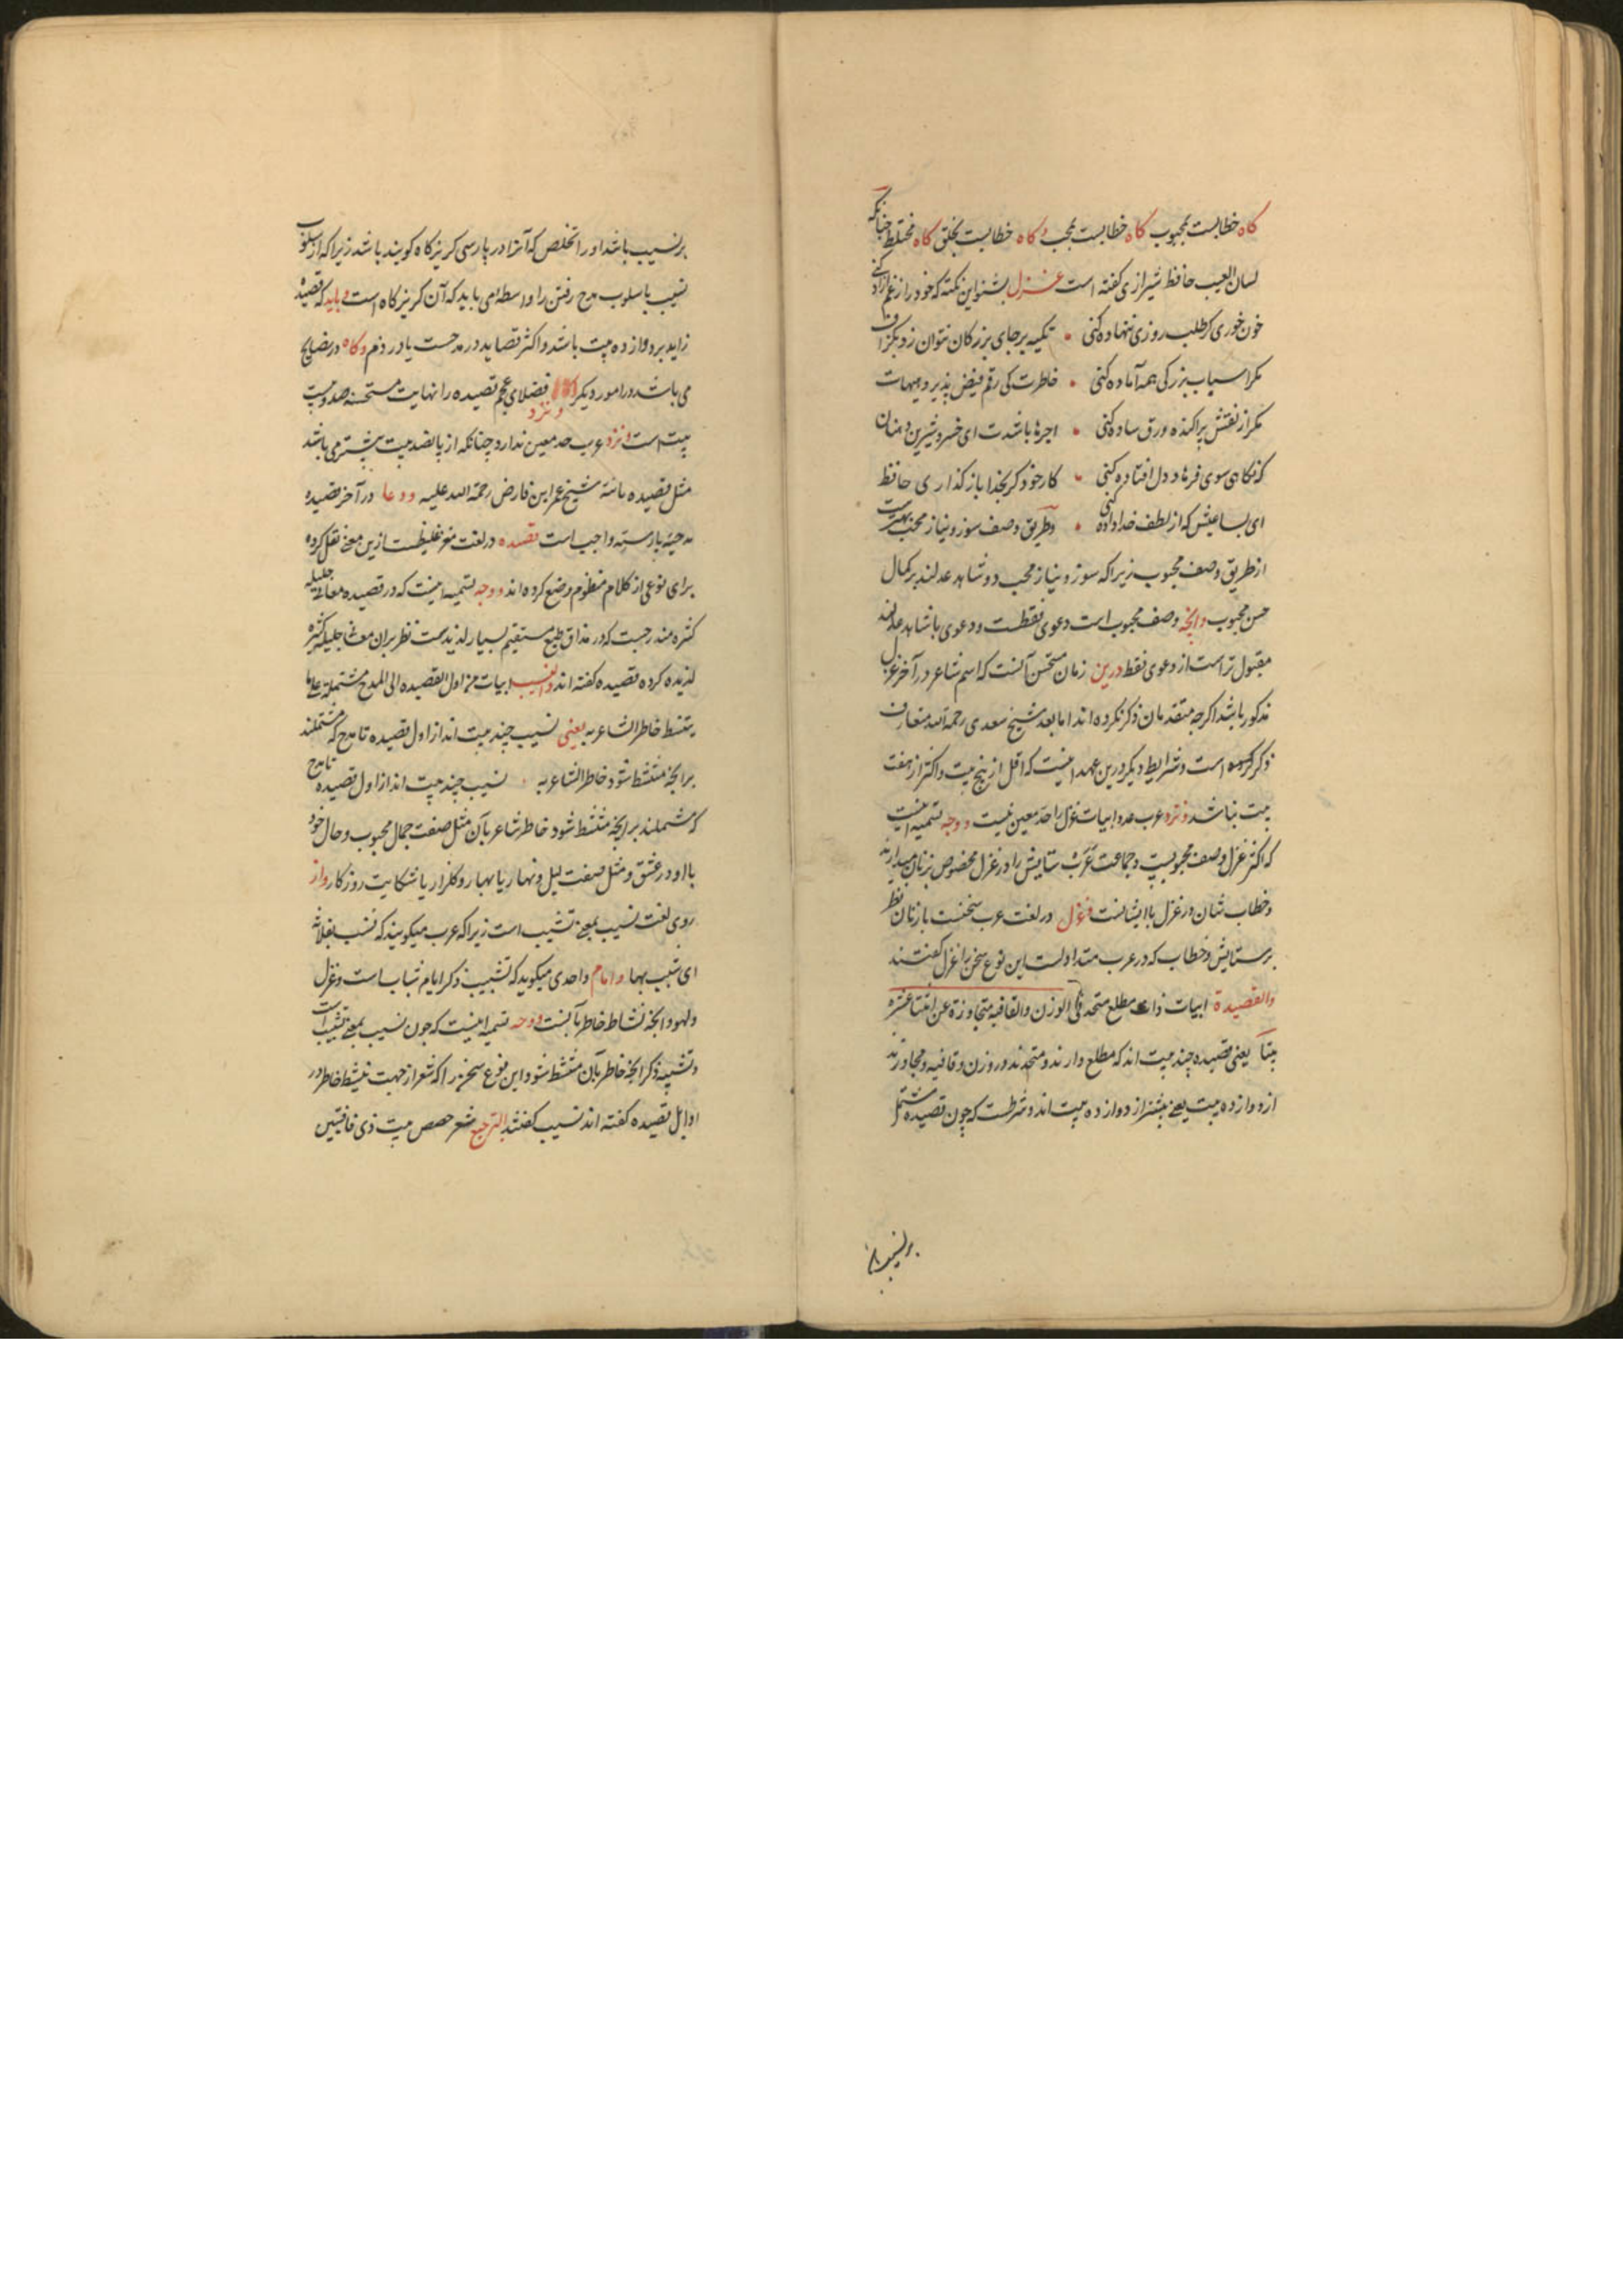 کاه خطابست بمحبوب کاه خطابست بمحب و کاه خطابست بخلق کاه مختلط چنانکه
لسان الغیب حافظ شیرازی کفته است غزل بشنو این نکته که خود را ز غم آزاده کنی
خون خوری کر طلب روزی ننهاده کنی • تکیه بر جای بزرکان نتوان زد بکزاف
مکر اسباب بزرکی همه آماده کنی • خاطرت کی رقم فیض پذیرد هیهات
مکر از نقش پراکنده ورق ساده کنی • اجرها باشدت ای خسرو شیرین دهنان
که نکاهی سوی فرهاد دل افتاده کنی • کار خود کر بخدا باز کذاری حافظ
ای بسا عیش که از لطف خداداده کنی • و طریق وصف سوز و نیاز محب بهترست
از طریق وصف محبوب زیرا که سوز و نیاز محب دو شاهد عدلند بر کمال
حسن محبوب وانچه وصف محبوب است دعوی فقطست و دعوی با شاهد عدلند
مقبول تر است از دعوی فقط درین زمان مستحسن آنست که اسم شاعر در آخر غزل
مذکور باشد اکرچه متقدمان ذکر نکرده اند اما بعد شیخ سعدی رحمة الله متعارف
ذکر کرده است و شرایط دیکر درین عهد اینست که اقل از پنج بیت و اکثر از هفت
بیت نباشد و نزد عرب عدد ابیات غزل را حد معین نیست و وجه تسمیه اینست
که اکثر غزل وصف محبوبیست و جماعت عرب ستایش را در غزل مخصوص بزنان میدارند
و خطاب شان در غزل با ایشانست و غزل در لغت عرب سخنست با زنان نظر
بر ستایش و خطاب که در عرب متداولست این نوع سخن را غزل کفتند
والقصیدة ابیات ذات مطلع متحد فی الوزن والقافیه متجاوزة عن اثنتا عشرة
بیتا یعنی قصیده چند بیت اند که مطلع دارند و متحدند در وزن و قافیه و متجاوزند
از دوازده بیت یعنی بیشتر از دوازده بیت اند و شرطست که چون قصیده مشتمل
بر نسیب با
بر نسیب باشد او را تخلص که آنرا در پارسی کریزکاه کویند باشد زیرا که از اسلوب
نسیب باسلوب مدح رفتن را واسطه می باید که آن کریزکاه است و باید که قصیده
زاید بر دوازده بیت باشد و اکثر قصاید در مدحست یا در ذم و کاه در نصایح
می باشد و در امور دیکر و نزد فضلای عجم قصیده را نهایت مستحسنه صد و بیست
بیت است و نزد عرب حد معین ندارد چنانکه از پانصد بیت بیشتر می باشد
مثل قصیده تائیه شیخ عمر ابن فارض رحمة الله علیه و دعا در آخر قصیده
مدحیه بایسته واجب است قصیده در لغت مغز غلیظست ازین معنی نقل کرده
برای نوعی از کلام منظوم وضع کرده اند و وجه تسمیه اینست که در قصیده معانی جلیله
کثره مندرجست که در مذاق طبع مستقیم بسیار لذیذست نظر بران معانی جلیله کثیره
لذیذه کرده قصیده کفته اند والنسیب ابیات من اول القصیده الی المدح مشتملة علی ما
یتنشط خاطر الشاعر به یعنی نسیب چند بیت اند از اول قصیده تا مدح که مشتملند
برانچه متنشط شود خاطر الشاعر به • نسیب چند بیت اند از اول قصیده تا مدح
که مشتملند برانچه متنشط شود خاطر شاعر بآن مثل صفت جمال محبوب و حال خود
با او در عشق و مثل صفت لیل و نهار یا بهار و کلزار یا شکایت روزکار و از
روی لغت نسیب بمعنی تشبیب است زیرا که عرب میکویند که نسب بفلانة
ای شبب بها و امام واحدی میکوید که تشبیب ذکر ایام شباب است و غزل
و لهو وانچه نشاط خاطر بآنست و وجه تسمیه اینست که چون نسیب بمعنی تشبیب است
و تشبیب ذکر انچه خاطر بآن متنشط شود این نوع سخن را که شعرا از جهت تنشیط خاطر در
اوایل قصیده کفته اند نسیب کفتند الترجیع شعر حصص بیت ذی قافیتین